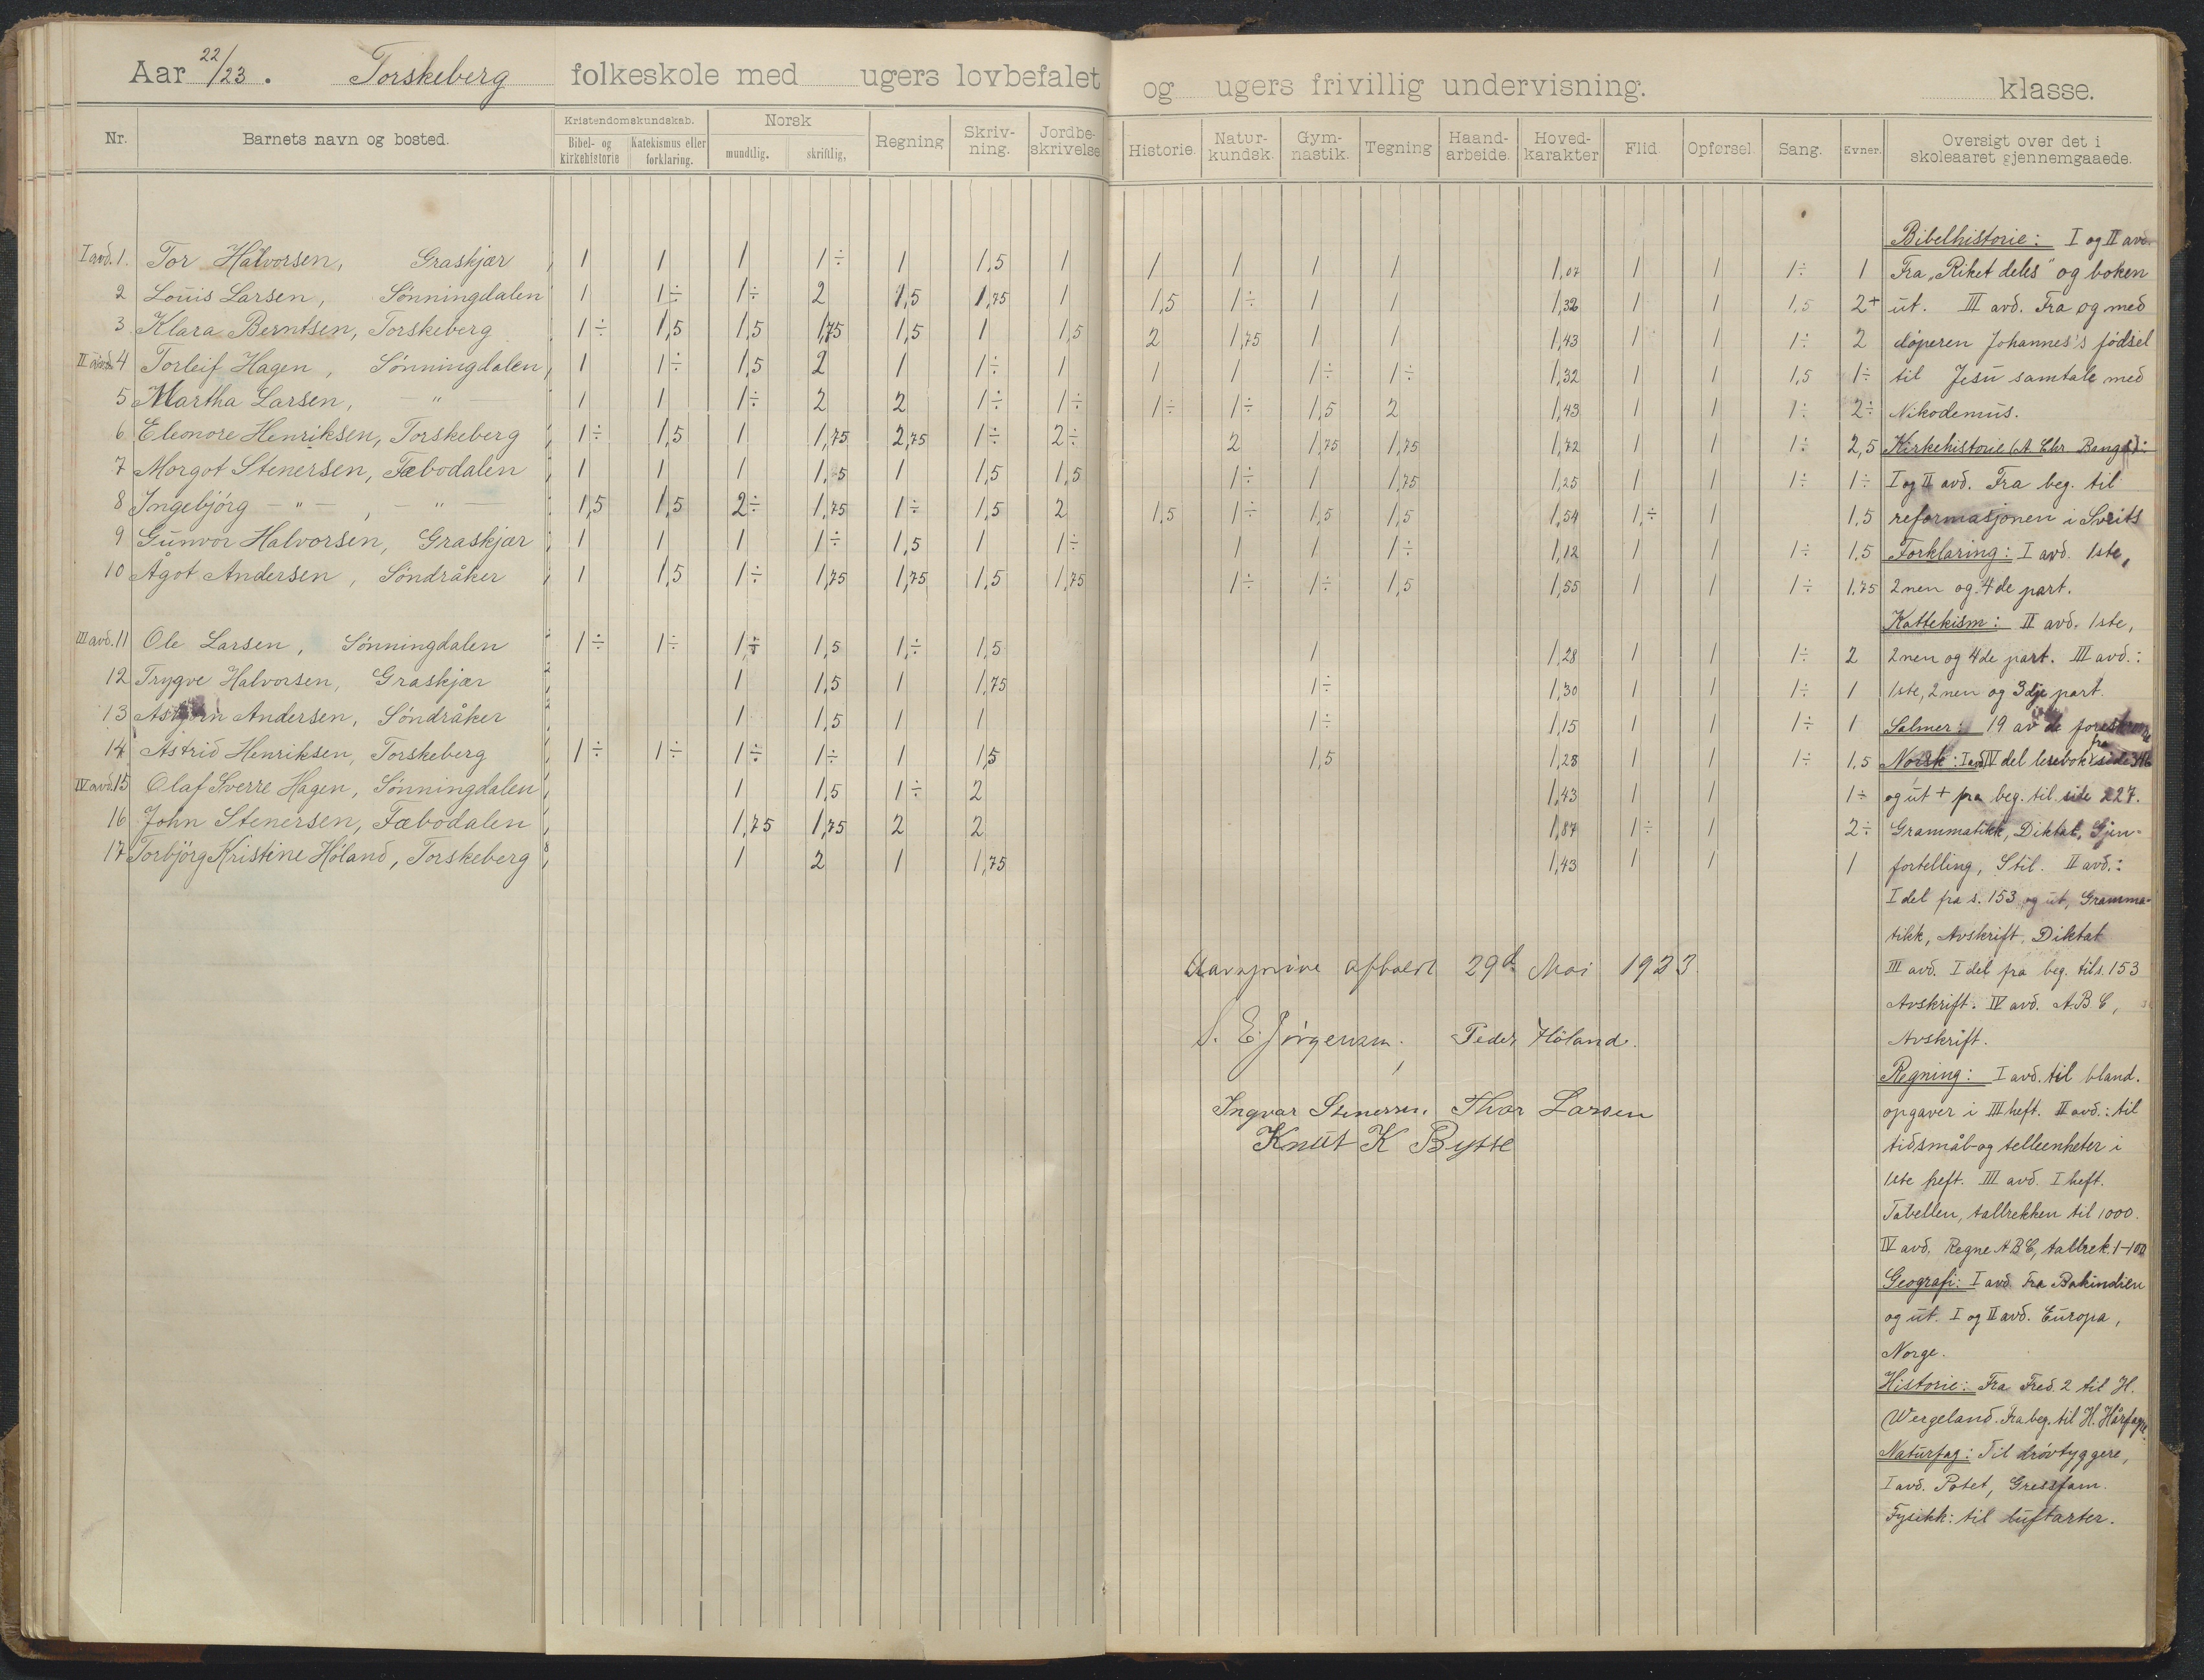 Aar 22/23. Torskeberg folkeskole med ugers lovbefalet og ugers frivillig undervisning. klasse.
Nr. Barnets navn og bosted. Kristendomskundskab. Bibel- og kirkehistorie Katekismus eller forklaring. Norsk mundtlig. skriftlig, Regning Skriv-ning. Jordbe-skrivelse Historie. Natur-kundsk. Gym-nastik. Tegning Haand-arbeide. Hoved-karakter Flid. Opførsel. Sang. Evner. Oversigt over det i skoleaaret gjennemgaaede.
I avd. 1. Tor Halvorsen, Graskjær 1 1 1 1÷ 1 1,5 1 1 1 1 1 1,07 1 1 1÷ 1
2 Louis Larsen, Sønningdalen 1 1÷ 1÷ 2 1,5 1,75 1 1,5 1÷ 1 1 1,32 1 1 1,5 2+
3 Klara Berntsen, Torskeberg 1÷ 1,5 1,5 1,75 1,5 1 1,5 2 1,75 1 1 1,43 1 1 1÷ 2
II avd. 4 Torleif Hagen, Sønningdalen, 1 1÷ 1,5 2 1 1÷ 1 1 1 1÷ 1÷ 1,32 1 1 1,5 1÷
5 Martha Larsen, — " — 1 1 1÷ 2 2 1÷ 1÷ 1÷ 1÷ 1,5 2 1,43 1 1 1÷ 2÷
6 Eleonore Henriksen, Torskeberg 1÷ 1,5 1 1,75 2,75 1÷ 2÷ 2 1,75 1,75 1,72 1 1 1÷ 2,5
7 Morgot Stenersen, Fæbodalen 1 1 1 1,5 1 1,5 1,5 1÷ 1 1,75 1,25 1 1 1÷ 1÷
8 Ingebjörg — " —, — " — 1,5 1,5 2÷ 1,75 1÷ 1,5 2 1,5 1÷ 1,5 1,5 1,54 1,÷ 1 1,5
9 Gunvor Halvorsen, Graskjær 1 1 1 1÷ 1,5 1 1÷ 1 1 1÷ 1,12 1 1 1÷ 1,5
10 Ågot Andersen, Söndråker 1 1,5 1÷ 1,75 1,75 1,5 1,75 1÷ 1÷ 1,5 1,55 1 1 1÷ 1.75
III avd. 11 Ole Larsen, Sønningdalen 1÷ 1÷ 1÷ 1,5 1,÷ 1,5 1 1,28 1 1 1÷ 2
12 Trygve Halvorsen, Graskjær 1 1,5 1 1,75 1÷ 1,30 1 1 1÷ 1
13 Asbjørn Andersen, Söndråker 1 1,5 1 1 1÷ 1,15 1 1 1÷ 1
14 Astrid Henriksen, Torskeberg 1÷ 1÷ 1÷ 1÷ 1 1,5 1,5 1,28 1 1 1÷ 1,5
IV avd. 15 Olaf Sverre Hagen, Sønningdalen 1 1,5 1÷ 2 1,43 1 1 1÷
16 John Stenersen, Fæbodalen 1,75 1,75 2 2 1,87 1÷ 1 2÷
17 Torbjörg Kristine Höland, Torskeberg 1 2 1 1,75 1,43 1 1 1
Aarsprøve afholdt 29d Mai 1923.
S. E. Jörgensen. Peder Höland.
Ingvar Stenersen, Thor Larsen
Knut K Bytte
Bibelhistorie: I og II avd.
Fra „Riket deles" og boken
ut. III avd. Fra og med
døperen Johannes's fødsel
til Jesu samtale med
Nikodemus.
Kirkehistorie (A. Chr. Bangs):
I og II avd. Fra beg. til
reformasjonen i Sveits
Forklaring: I avd. 1ste,
2nen og 4de part.
Kattekism: II avd. 1ste,
2nen og 4de part. III avd.:
1ste, 2nen og 3dje part.
Salmer: 19 av de
Norsk: I avd. IV del lesebok fra side 316
og ut + fra beg. til side 227.
Grammatikk, Diktat, Gjen-
fortelling, Stil. II avd.:
I del fra s. 153 og ut, Gramma-
tikk, Avskrift, Diktat
III avd. I del fra beg. til s. 153
Avskrift. IV avd. A.B C,
Avskrift.
Regning: I avd. til bland.
opgaver i III heft. II avd.: til
tidsmål og telleenheter i
1ste heft. III avd. I heft.
Tabellen, tallrekken til 1000.
IV avd. Regne A B C, tallrek. 1-100
Geografi: I avd. Fra Bakindien
og ut. I og II avd. Europa,
Norge.
Historie: Fra Fred. 2 til H.
Wergeland. Fra beg. til H. Hårfagre.
Naturfag: Til drøvtyggere,
I avd. Potet, Gressfam.
Fysikk: til luftarter.